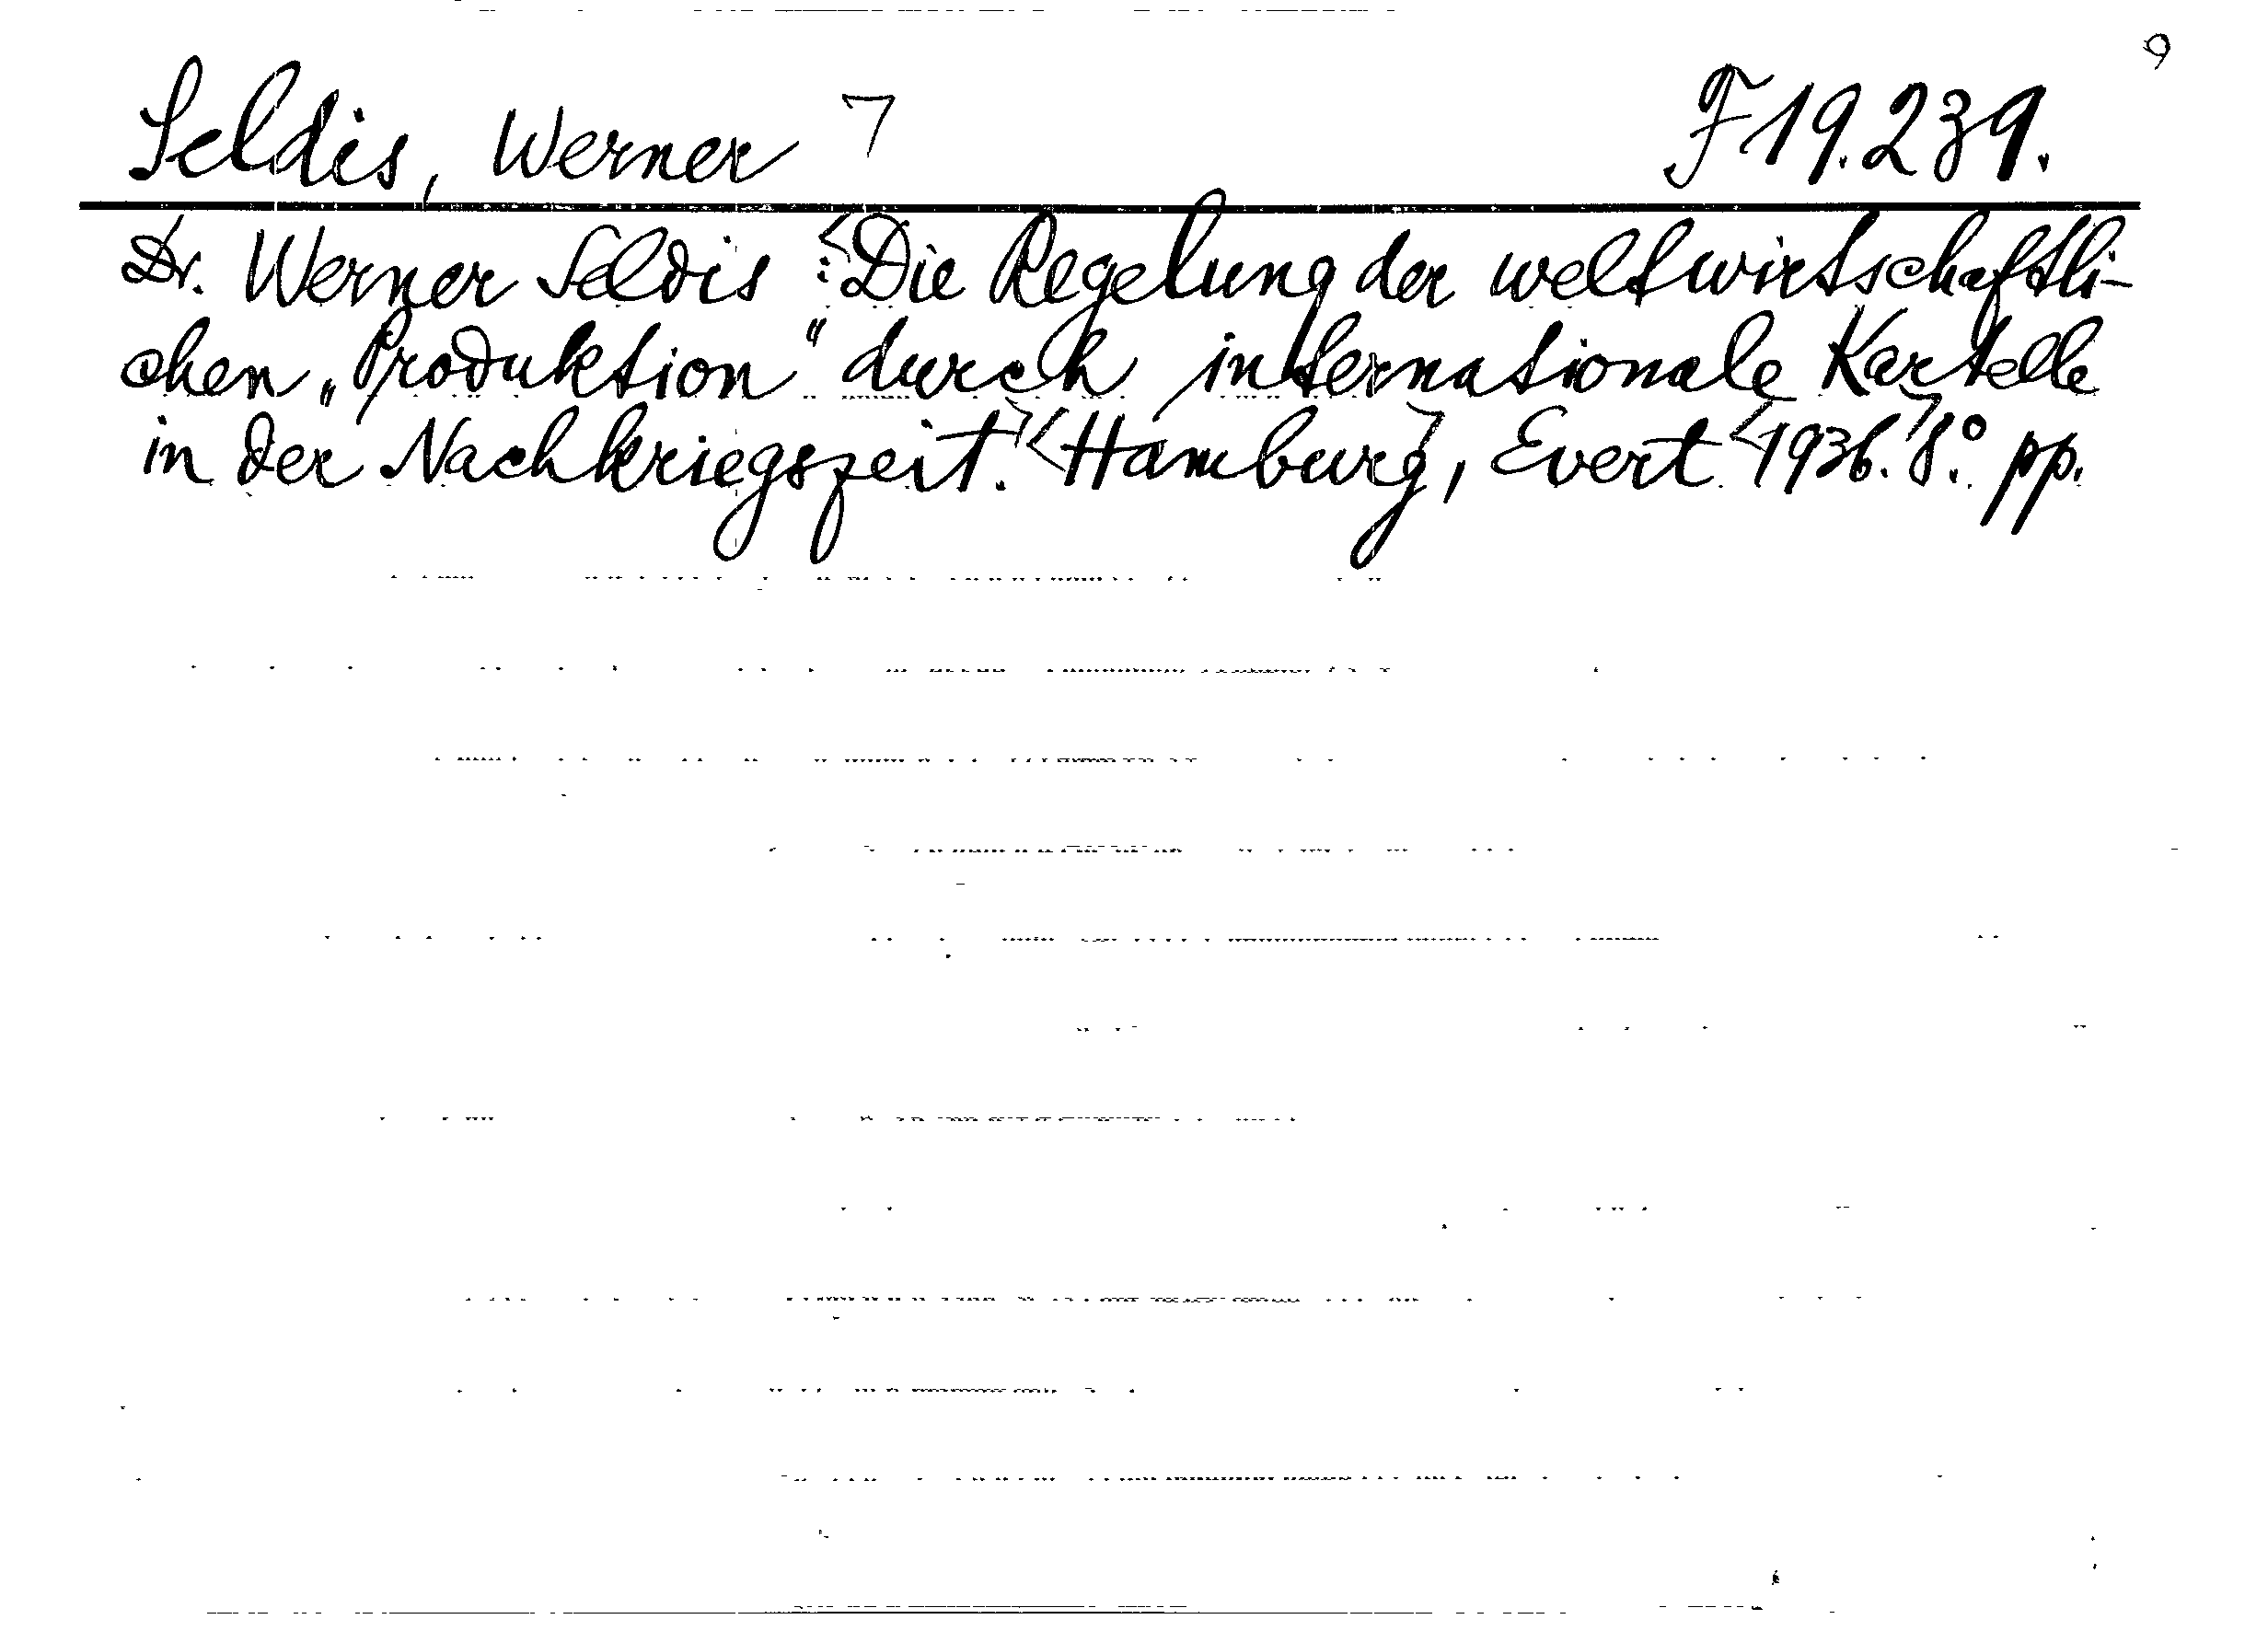 Seldis, Werner ㄱ F 19.239. 9
Dr. Werner Seldis : <Die Regelung der weltwirtschaftli-
chen „Produktion“ durch internationale Kartelle
in der Nachkriegszeit.> <Hamburg>, Evert <1936.> 8.° pp.